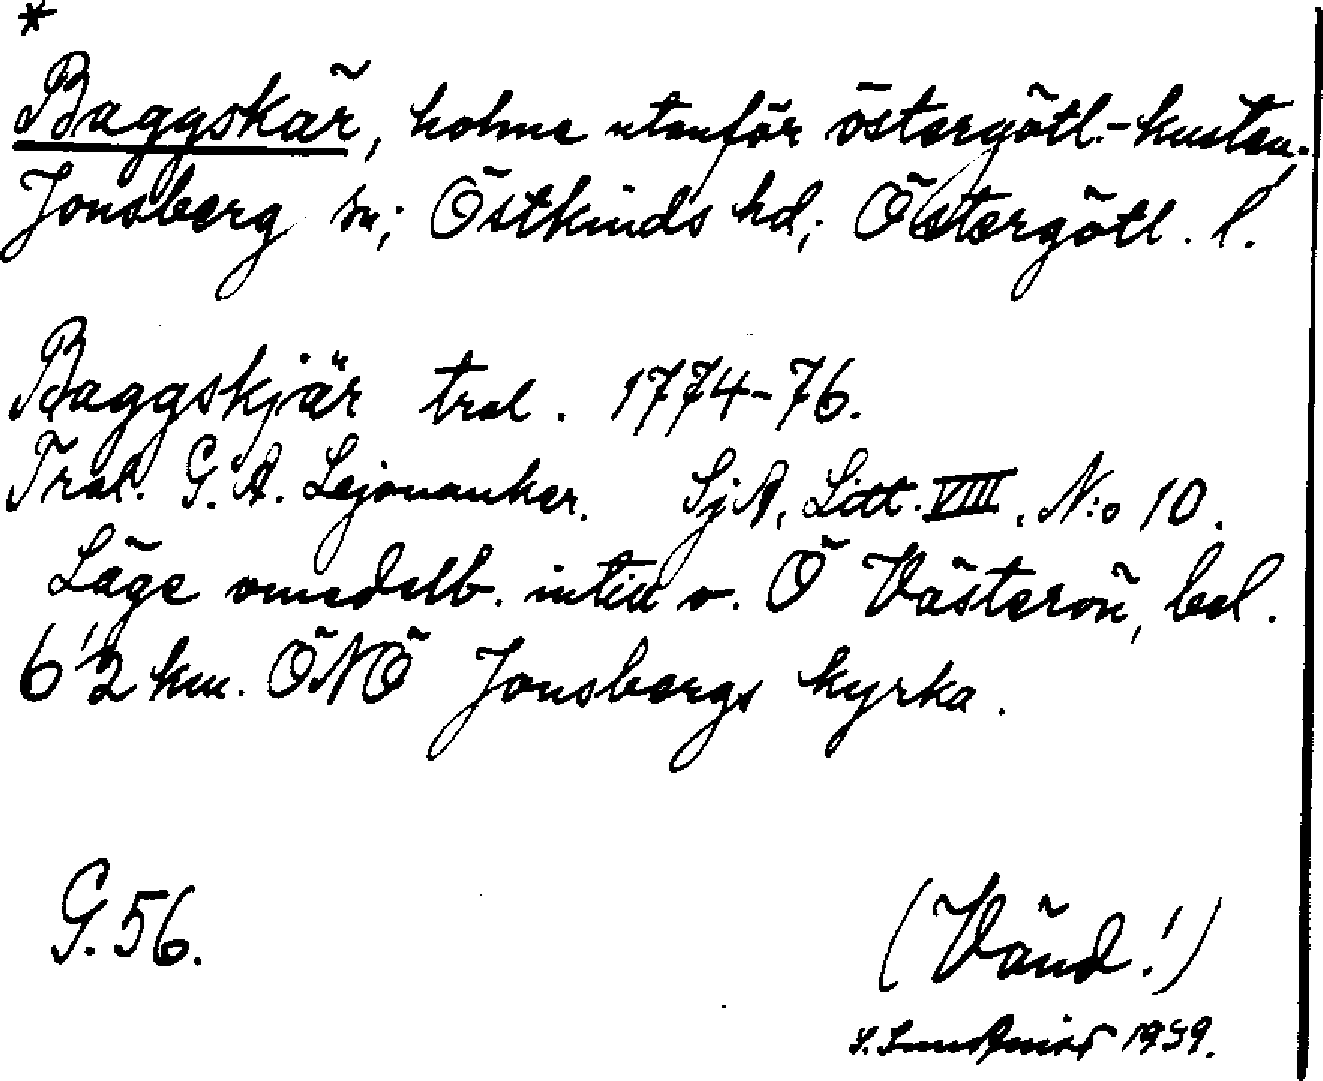 *
Baggskär, holme utanför östergötl.-kusten,
Jonsberg sn; Östkinds hd; Östergötl. l.
Baggskjär tral. 1774-76.
Tral. G. A. Lejonanker. SjA, Litt. VIII, N:o 10.
Läge omedelb. intill o. Ö Västerön, bel.
6 1/2 km. ÖNÖ Jonsbergs kyrka.
G. 56.
(Vänd!)
1939.